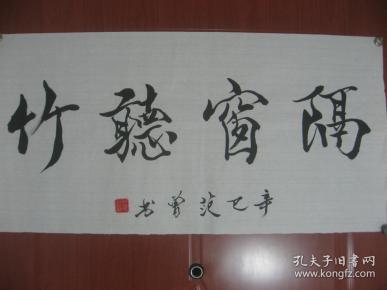 隔窗聽竹
辛巳范曾书
孔夫子旧书网
www.kongfz.com